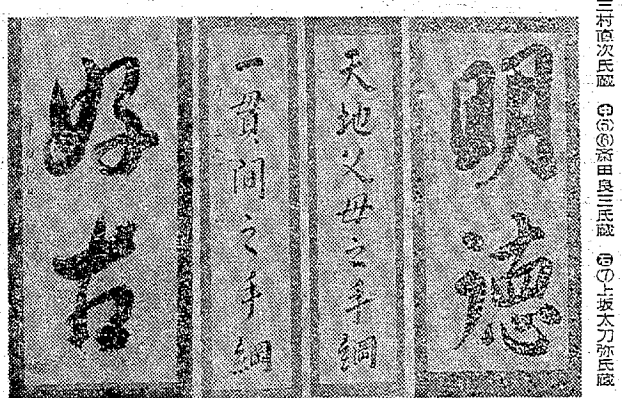 三村直次氏蔵 ㊥⑤⑥斎田良三氏蔵 ㊨⑦上坂太刀弥氏蔵
明徳
天地父母之手綱
一貫間之手綱
好古